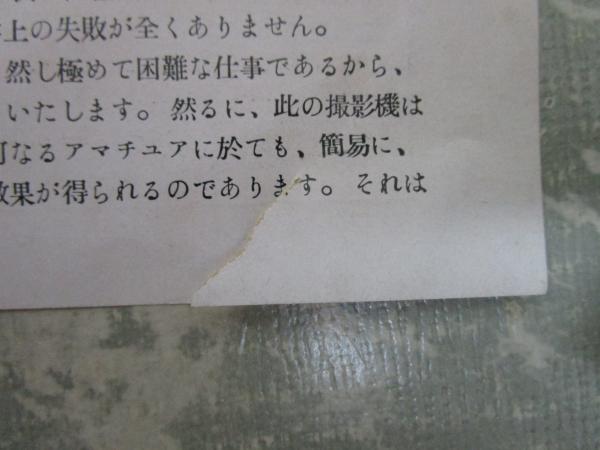 上の失敗が全くありません。
然し極めて困難な仕事であるから、
いたします。然るに、此の撮影機は
なるアマチユアに於ても、簡易に、
効果が得られるのであります。それは